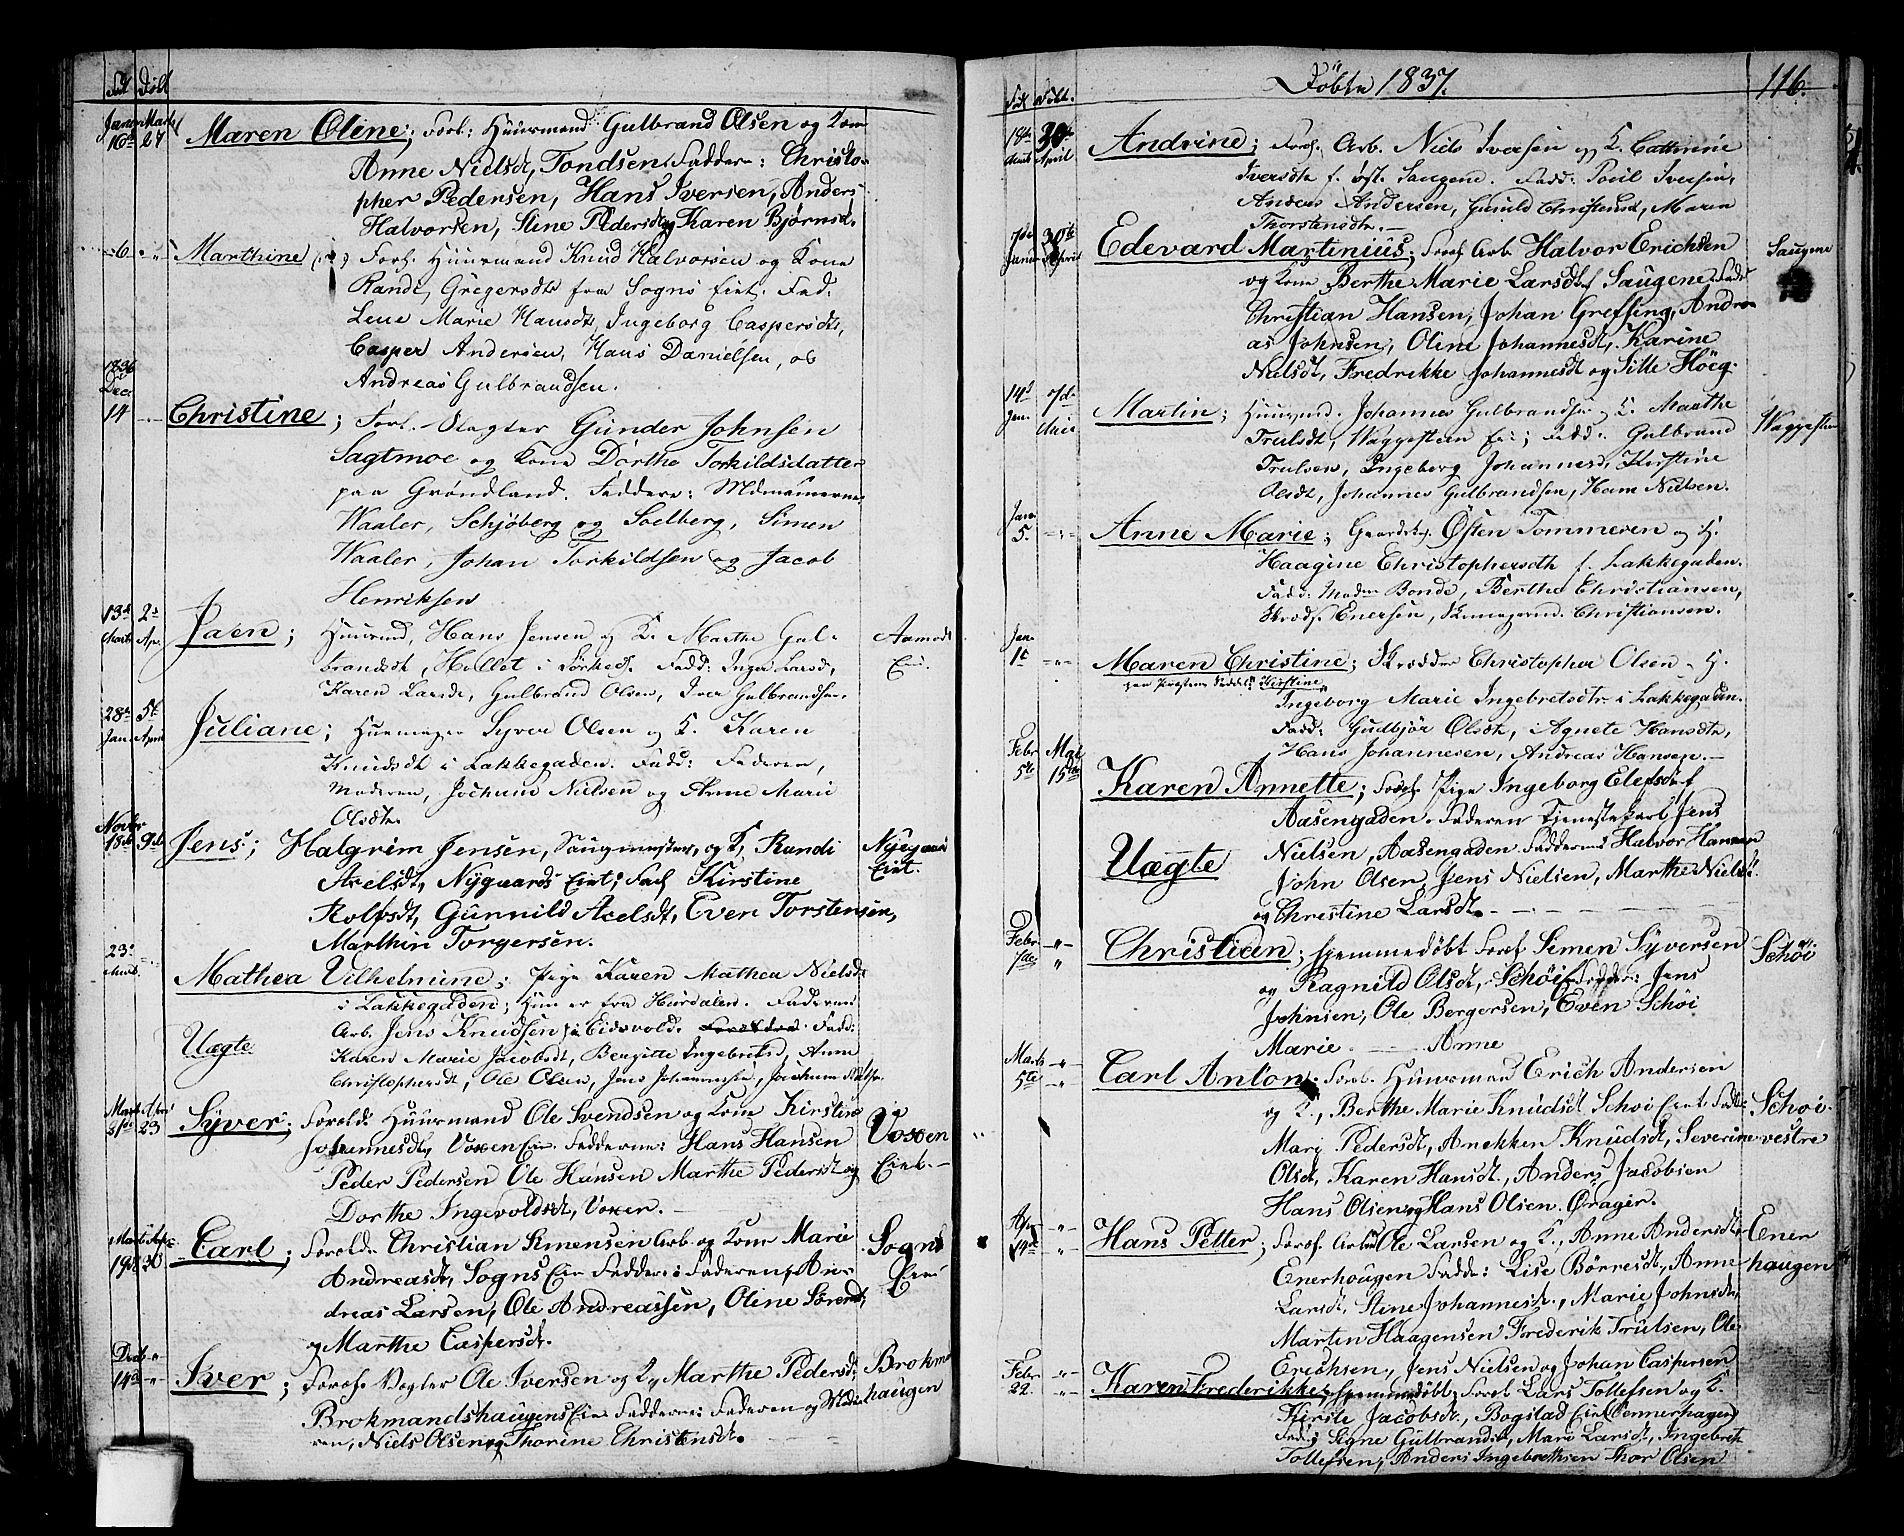 Janu Marts
16de 27
Maren Oline; Foræl: Huusmand Gulbrand Olsen og Kone
Anne Nielsdt, Tondsen. Faddere: Christo-
pher Pedersen, Hans Iversen, Anders
Halvorsen, Stine Pedersdtr Karen Bjørnsd.
6
Marthine Foræl. Huusmand Knud Halvorsen og Kone
Randi Gregersdtr fra Sogns Eiet. Fad.
Lene Marie Hansdtr, Ingeborg Caspersdtr,
Casper Andersen, Hans Danielsen, og
Andreas Gulbrandsen.
1836
Dec
14
Christine; Foræl. Slagter Gunder Johnsen
Sagtmoe og Kone Dorthe Torkildsdatter
paa Grønland. Faddere: Madamerne
Waaler, Schjøberg og Soelberg, Simen
Waaler, Johan Torkildsen og Jacob
Henriksen
13d 2d
Marts Apr.
Paen; Huusmd, Hans Jensen og K. Marthe Gul-
brandsdt, Hellet i Sørkeds. Fadd: Inger Larsd,
Karen Larsdt, Gulbrand Olsen, Iver Gulbrandsen.
Aamodt
Eiet.
28de 5te
Jan. April
Juliane; Huusmager Syver Olsen og K. Karen
Knudsdt i Lakkegaden. Fadd: Faderen,
Moderen, Jochum Nielsen og Anne Marie
Olsdtr.
Novbr
18de 9de
Jens; Halgrim Jensen, Saugmester, og K. Randi
Axelsdt, Nygaards Eiet; Fad Kirstine
Rolfsdt, Gunnild Axelsdt, Even Torstensen,
Marthin Torgersen.
Nygaards
Eiet.
23de
Mathea Vilhelmine; Pige Karen Mathea Nielsd
i Lakkegaden; Hun er fra Hurdalen. Faderen
Arb. Jens Knudsen i Eidsvold. Fadd:
Karen Marie Jacobsdt, Bergitte Ingebretsd, Anne
Christophersdt, Ole Olsen, Jens Johannesen, Jochum Nielsen
Uægte
Marts April
5te 23
Syver; Foræld. Huusmand Ole Svendsen og Kone Kirstine
Johannesdt, Voxen Eie. Fadderne: Hans Hansen
Peder Pedersen Ole Hansen Marthe Pedersdt og
Dorthe Ingevoldsdt, Voxen.
Voxen
Eiet.
Marts Apr.
19de 30
Carl; Foræld. Christian Simensen Arb. og Kone Marie
Andreasdt, Sogns Eie Faddere: Faderen, An-
dreas Larsen, Ole Andreassen, Oline Sørensdt,
og Marthe Caspersdt.
Sogns
Eie
Decb
14de
Iver; Foræl. Vogter Ole Iversen og K. Marthe Pedersdt
Brokmandshaugens Eie Fadderne: Faderen og Mode-
ren, Niels Olsen og Thorine Christensdt.
Brokm
haugen
Døbte 1837.
116.
18de 30te
Marts April
Andrine; Foræl. Arb. Niels Iversen og K. Cathrine
Iversdtr f. øst. Saugene. Fadd: Poul Iversen,
Anders Andersen, Gunild Christensd, Maren
Thorstensdtr.
7de 30te
Januar April
Edevard Martinius; Foræl Arb. Halvor Erichsen
og Kone Berthe Marie Larsdt Saugene. Fadd
Christian Hansen, Johan Grefsing, Andre-
as Johnsen, Oline Johannesdt, Karine
Nielsdt, Fredrikke Johannesdt og Sille Höeg.
Saugene
14de 7de
Jan. Mai
Martin; Huusmd. Johannes Gulbrandsen og K. Marthe
Trulsdt, Waggesteen Eie; Fadd. Gulbrand
Trulsen, Ingeborg Johannesd, Kirstine
Olsdt, Johannes Gulbrandsen, Hans Nielsen.
Waggesteen
Jan.
5.
Anne Marie; Gaardsk. Østen Tommesen og H.
Haagine Christophersdt f. Lakkegaden.
Fadd: Madm Bonde, Berthe Christiansen,
Skrædr. Enersen, Skomagersvd. Christiansen.
Jan.
1te
Maren Christine; Skrædder Christopher Olsen og H.
Kirstine
Ingeborg Marie Ingebretsdtr i Lakkegaden.
Fadd: Gudbjør Olsdt, Agnete Hansdtr,
Hans Johannesen, Andreas Hansen.
Febr Mai
5te 15de
Karen Annette; Foræl. Pige Ingeborg Elefsdt
Aasengaden. Faderen Tjenestekarl Jens
Nielsen, Aasengaden Fadderne Halvor Hansen
John Olsen, Jens Nielsen, Marthe Nielsdt
og Christine Larsdt.
Uægte
Febr
7de
Christian; hjemmedøbt Foræl Simen Syversen
og Ragnild Olsdt, Schøi. Fadder: Jens
Johnsen, Ole Bergersen, Even Schøi
Marie Anne
Schøi
Marts
5te
Carl Anton; Foræl. Huusmand Erich Andersen
og K., Berthe Marie Knudsdt Schøi Eiet Fadd:
Mari Pedersdt, Anekken Knudsdt, Severine
Olsdt, Karen Hansdt., Anders Jacobsen
Hans Olsen og Hans Olsen Ørager.
Schøi
vestre
Apr
14de
Hans Petter; Foræl. Arbm Ole Larsen og K., Anne Andersdtr
Enerhougen Fadd: Lise Börresdt, Anne
Larsdt, Stine Johannesdt., Marie Johnsdt,
Martin Haagensen Frederik Trulsen, Ole
Erichsen, Jens Nielsen og Johan Caspersen
Ener
haugen
Febr
22.
Karen Frederikke; hjemmedøbt, Foræl Lars Tollefsen og K.
Kirste Jacobsdt., Bogstad Eie (Sennerhagen)
Fad: Signe Gulbrandsd., Mari Larsdt, Ingebret
Tollefsen, Anders Ingebrethsen Thor Olsen